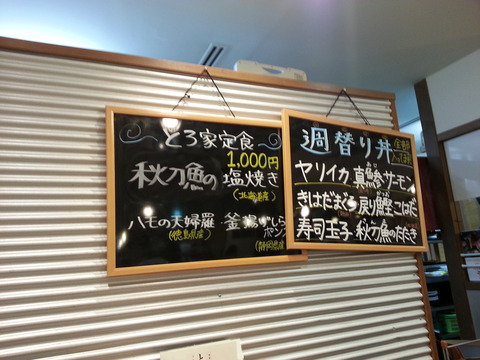 とろ家定食
1,000円
秋刀魚の塩焼き
(北海道産)
ハモの天婦羅 釜揚げしらす
ポン酢
(徳島県産)
(静岡県産)
週替り丼
全部
入ってます
ヤリイカ 真鯵 サーモン
きはだまぐろ 戻り鰹 こはだ
寿司玉子 秋刀魚のたたき